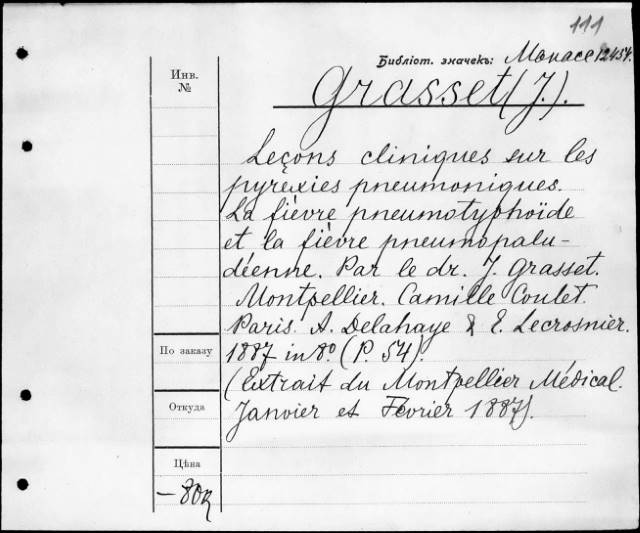 111
Библіот. значекъ: Monace 12454.
Инв.
№
Grasset (J.).
Leçons cliniques sur les
pyrexies pneumoniques.
La fièvre pneumotyphoïde
et la fièvre pneumopalu-
déenne. Par le dr. J. Grasset.
Montpellier. Camille Coulet.
Paris. A. Delahaye & E. Lecrosnier.
По заказу
1887 in 8º (P. 54).
(Extrait du Montpellier Médical.
Откуда
Janvier et Février 1887).
Цѣна
— 80к